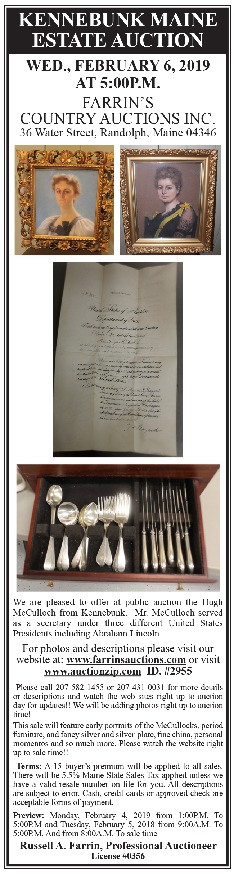 KENNEBUNK MAINE
ESTATE AUCTION
WED., FEBRUARY 6, 2019
AT 5:00P.M.
FARRIN'S
COUNTRY AUCTIONS INC.
36 Water Street, Randolph, Maine 04346
We are pleased to offer at public auction the Hugh
McCulloch from Kennebunk. Mr. McCulloch served
as a secretary under three different United States
Presidents including Abraham Lincoln
For photos and descriptions please visit our
website at: www.farrinsauctions.com or visit
www.auctionzip.com ID. #2955
Please call 207 582 1455 or 207 431 0031 for more details
or descriptions and watch the web sites right up to auction
day for updates!! We will be adding photos right up to auction
time!
This sale will feature early portraits of the McCullochs, period
furniture, and fancy silver and silver plate, fine china, personal
momentos and so much more. Please watch the website right
up to sale time!!
Terms: A 15 buyer's premium will be applied to all sales.
There will be 5.5% Maine State Sales Tax applied unless we
have a valid resale number on file for you. All descriptions
are subject to error. Cash, credit cards or approved check are
acceptable forms of payment.
Preview: Monday, February 4, 2019 from 1:00P.M. To
5:00P.M and Tuesday, February 5, 2018 from 9:00A.M. To
5:00P.M. And from 8:00A.M. To sale time
Russell A. Farrin, Professional Auctioneer
License #0356